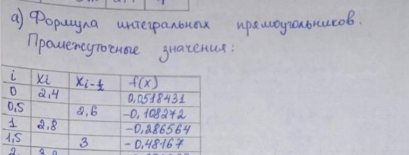 а) Формула интегральных прямоугольников.
Промежуточные значения:
i xi xi-½ f(x)
0 2,4 0,0518431
0,5 2,6 -0,108272
1 2,8 -0,286564
1,5 3 -0,48167